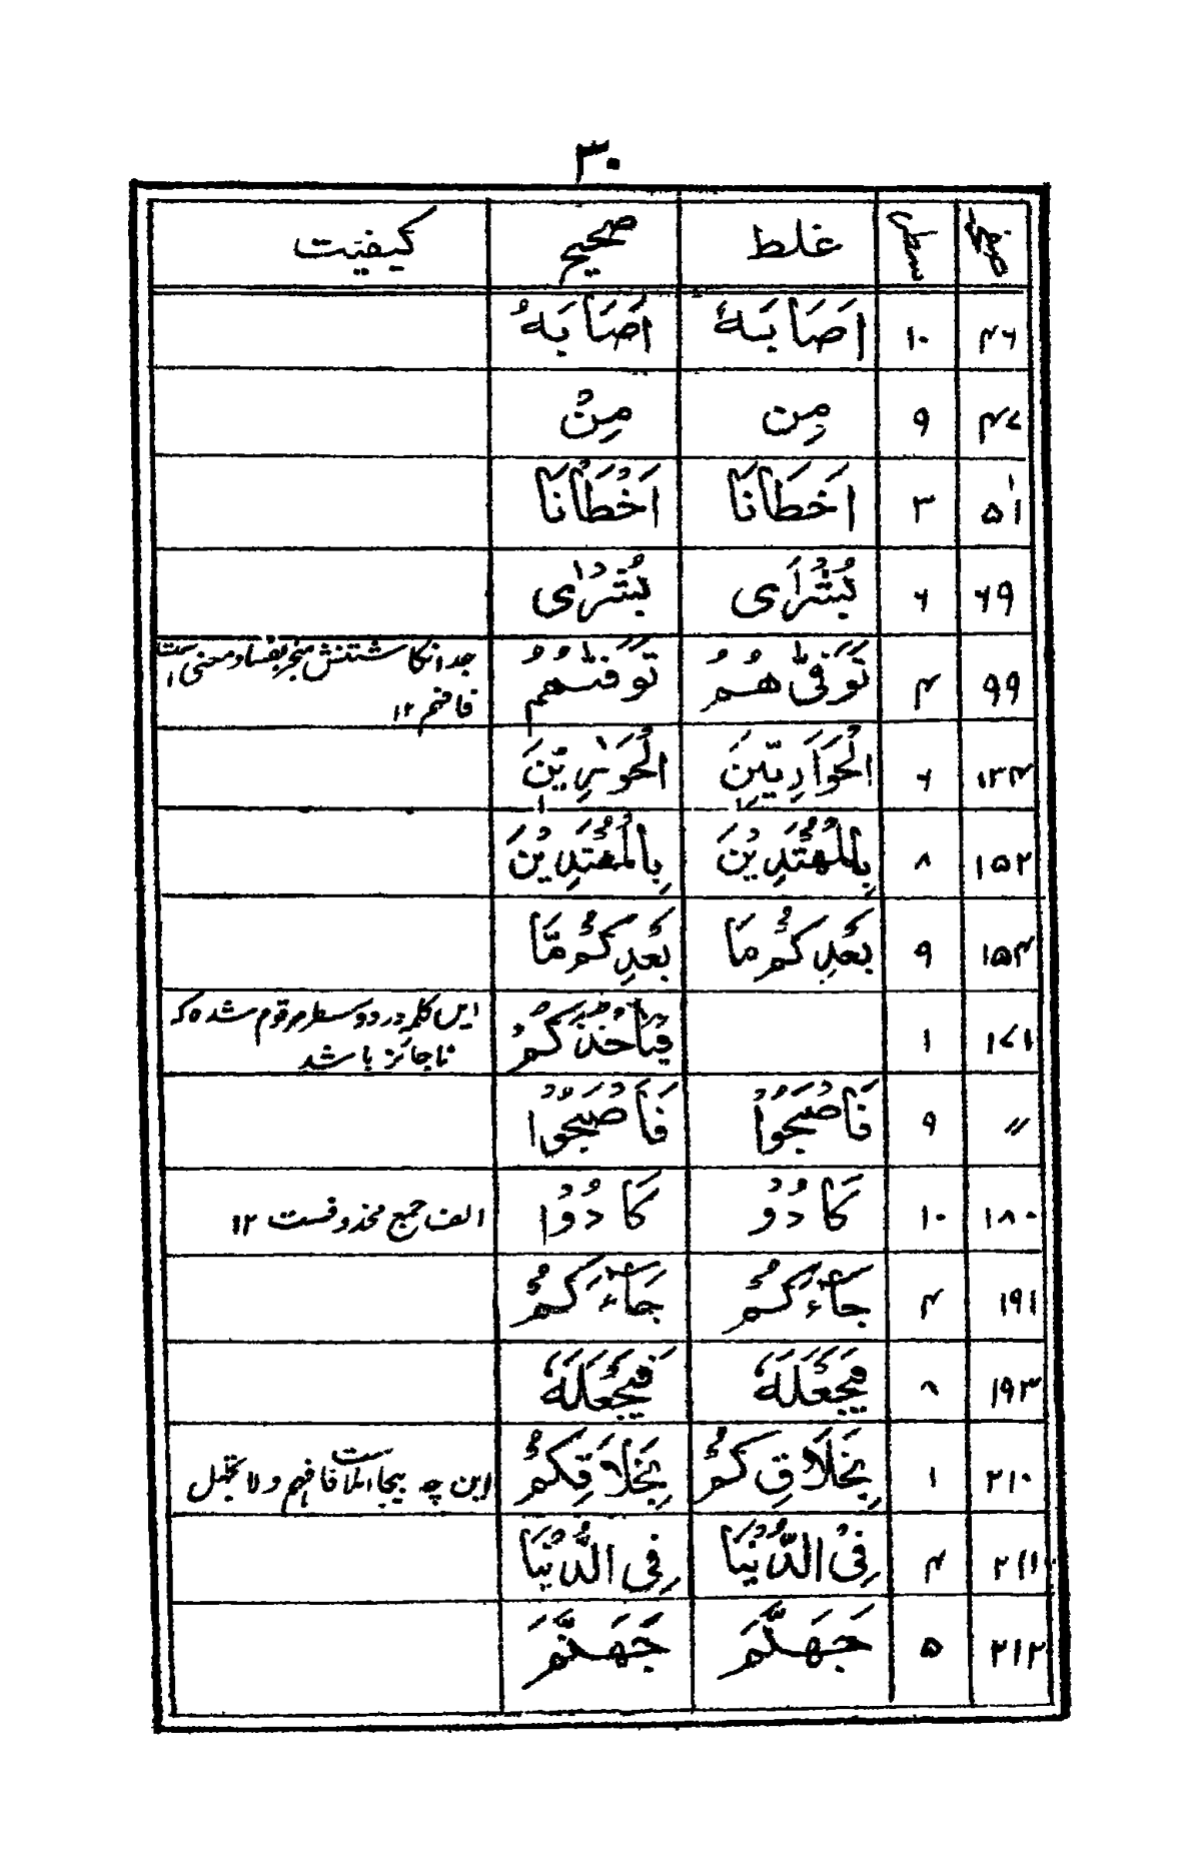 ٣٠
صفحہ سطر غلط صحیح کیفیت
۴۶ ١٠ اَصَابَهٗ اَصَابَهُ
۴۷ ٩ مِن مِنْ
۵۱ ٣ اَخَطَانَا اَخْطَأْنَا
۶۹ ۶ بُشْرَٰى بُشْرٰى
٩٩ ۴ تَوَفّٰى هُمْ تَوَفّٰىهُمْ جدا نگاشتنش منجر بفساد معنی است
فافهم ١٢
١٣۴ ۶ الْحَوَارِيّٖنَ الْحَوَارِيّٖنَ
١۵٢ ٨ بِالْمُهْتَدِيْنَ بِالْمُهْتَدِيْنَ
١۵۴ ٩ بَعْدِكُمْ مَا بَعْدِكُمْ مَّا
١٧١ ١ فَيَأْخُذَكُمْ این کلمه در دو سطر مرقوم شده که
ناجائز باشد
〃 ٩ فَاَصْبَحُوْا فَاَصْبَحُوْا
١٨٠ ١٠ كَادُوْ كَادُوْا الف جمع محذوفست ١٢
١٩١ ۴ جَآءَكُمْ جَآءَكُمْ
١٩٣ ٨ فَيَجْعَلَهٗ فَيَجْعَلَهٗ
٢١٠ ١ بِخَلَاقِ كُمْ بِخَلَاقِكُمْ این چه بیجا املاست فافهم ولا تعجل
٢١١ ۴ فِي الدُّنْيَا فِي الدُّنْيَا
٢١٢ ۵ جَهَنَّمَ جَهَنَّمَ